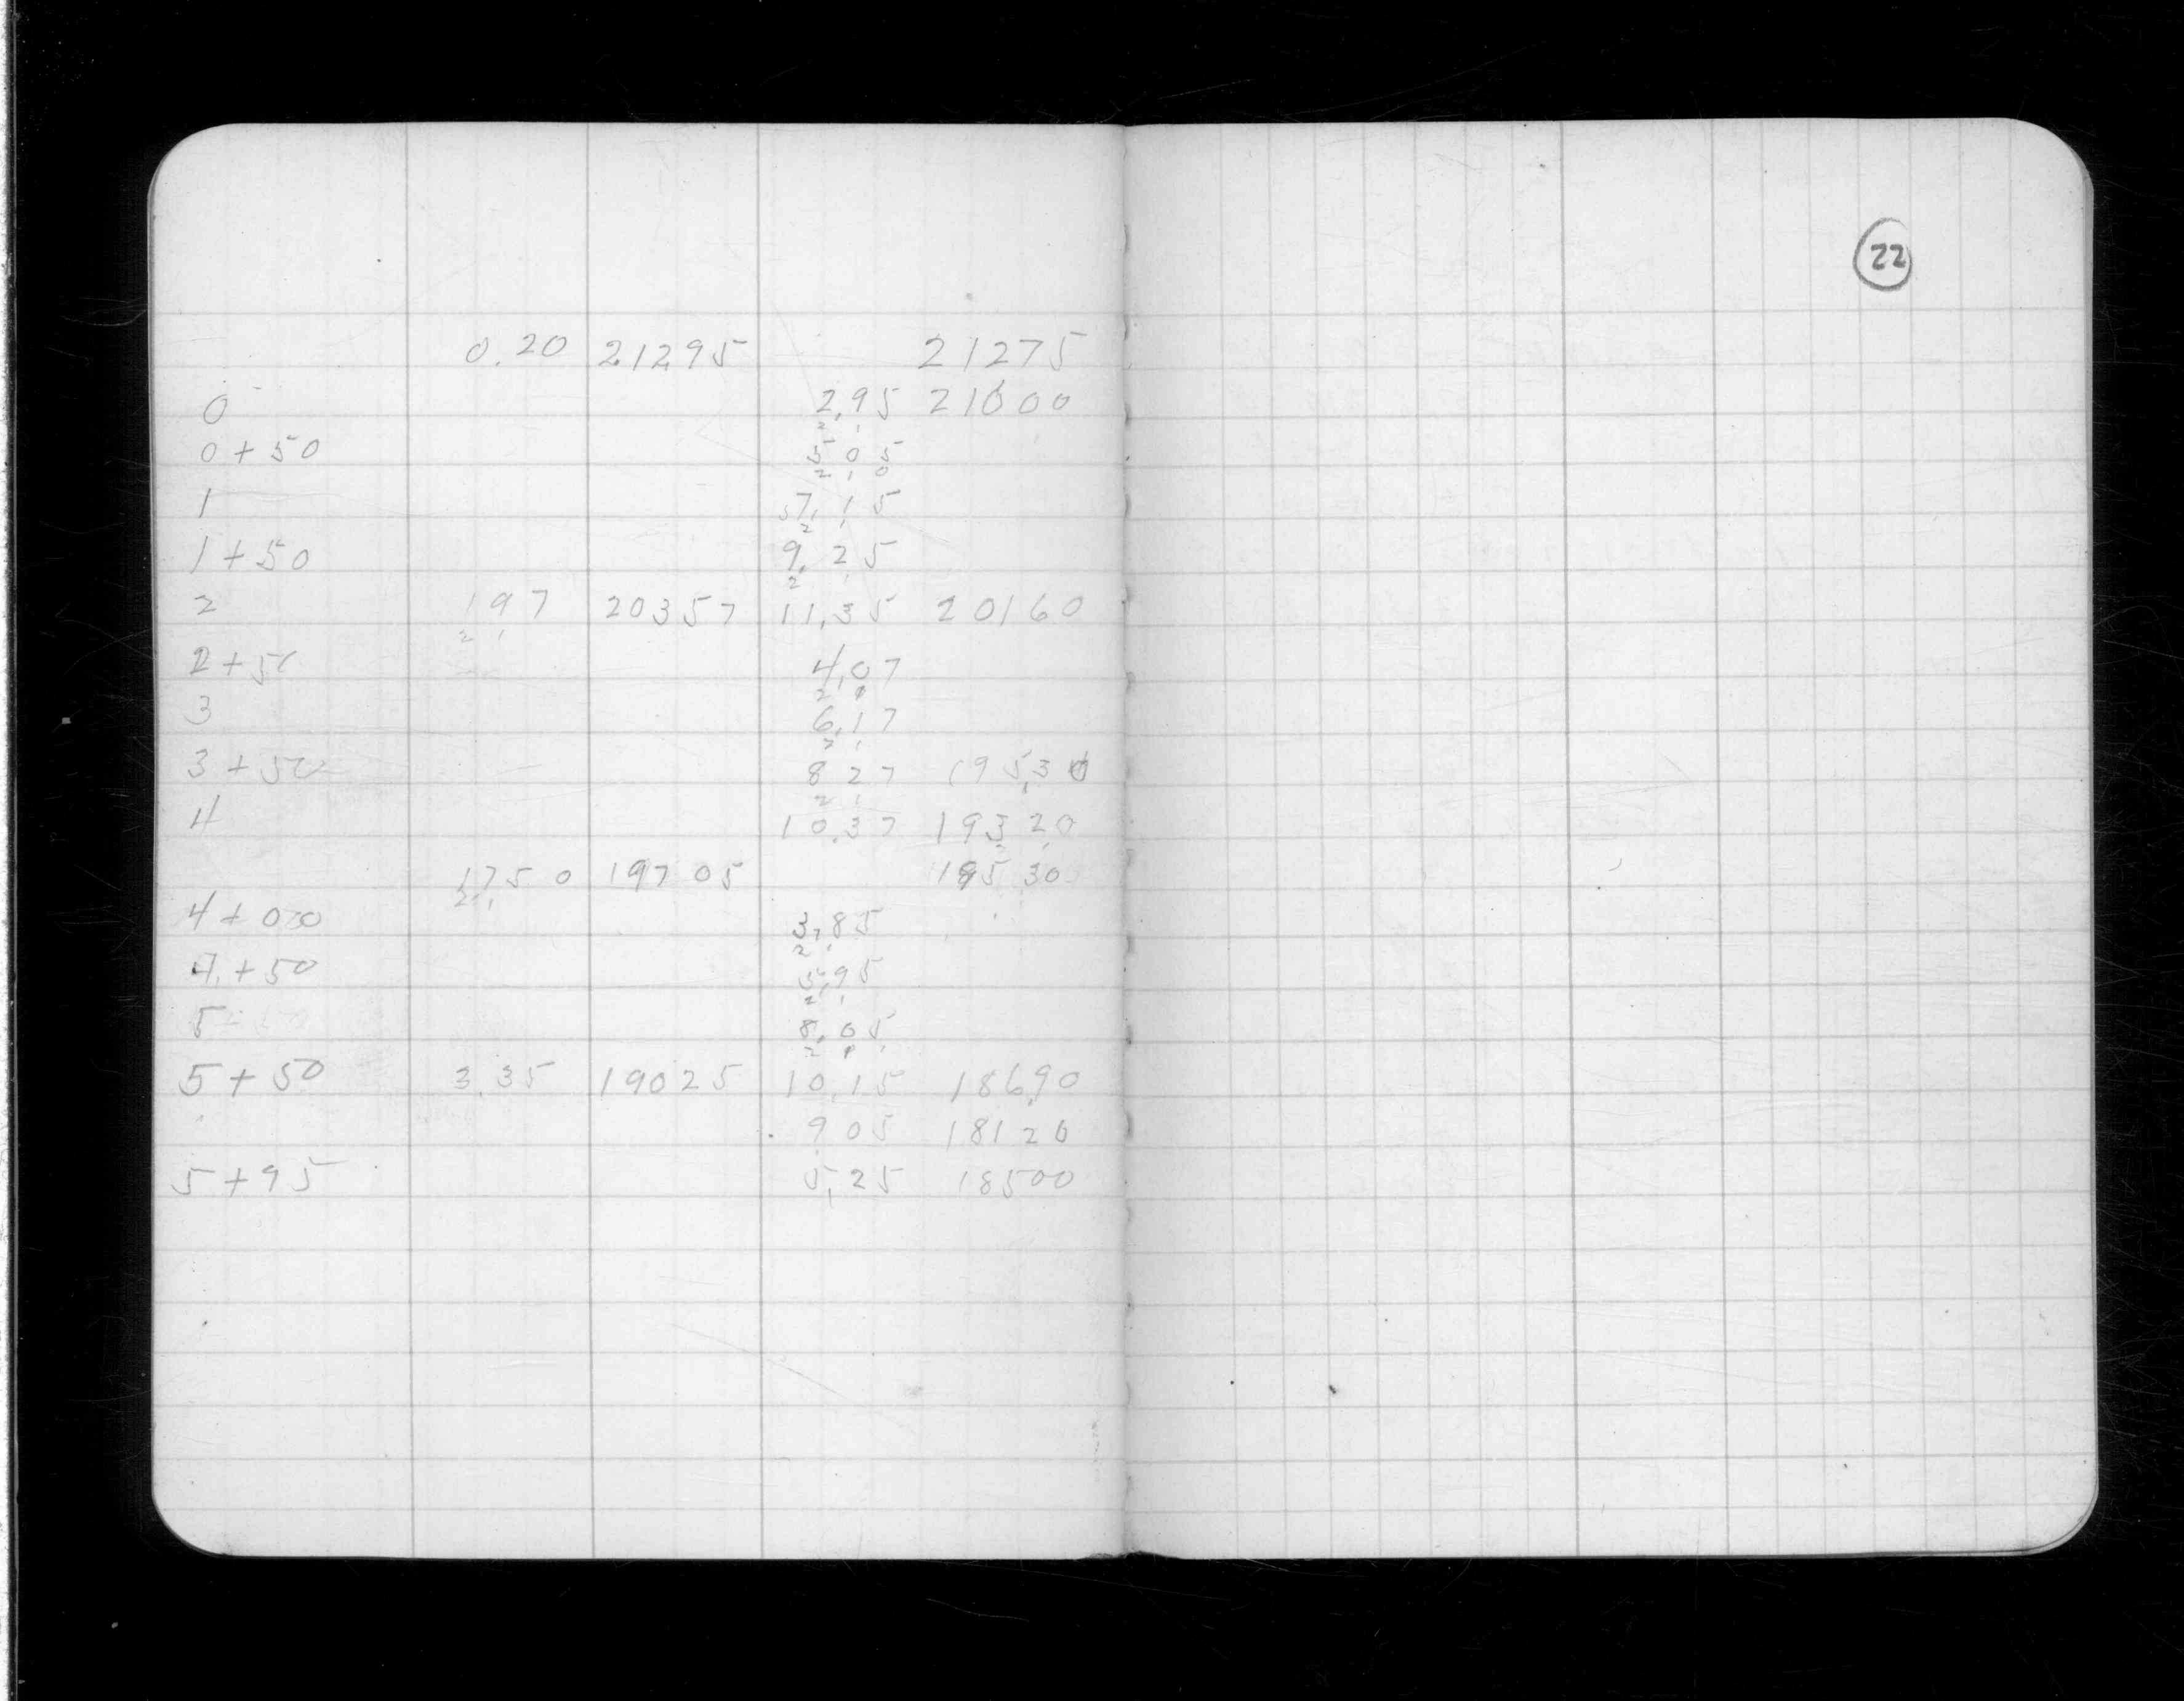 22
0.20 21295 21275
0 2.95 21000
2 1
0+50 5 05
2 1 0
1 7.15
2 1
1+50 9.25
2 1
2 197 20357 11.35 20160
2 1
2+50 4.07
2 1
3 6.17
2 1
3+50 8 27 19530
2 1
4 10.37 19320
1750 19705 19530
2 1
4+00 3.85
2 1
4+50 5.95
2 1
5 8.05
2 1
5+50 3.35 19025 10.15 18690
9 05 18120
5+95 5.25 18500